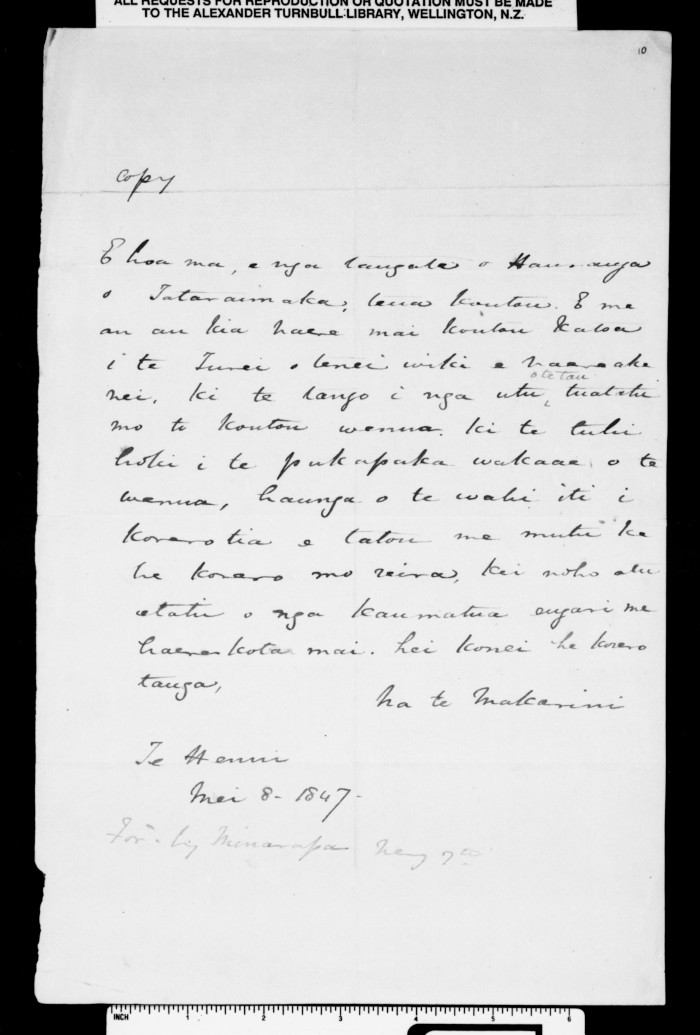 ALL REQUESTS FOR REPRODUCTION OR QUOTATION MUST BE MADE
TO THE ALEXANDER TURNBULL LIBRARY, WELLINGTON, N.Z.
10
copy
E hoa ma, e nga tangata o Hauranga
o Tataraimaka, tena koutou. E me
an au kia haere mai koutou katoa
i te Turei o tenei wiki e haere ake
nei, ki te tango i nga utu, o te tau tuatatu
mo to koutou wenua. ki te tuhi
hoki i te pukapuka wakaae o te
wenua, haunga o te wahi iti i
korerotia e tatou me mutu ka
he korero mo reira, kei noho atu
etahi o nga kaumatua engari me
haere kota mai. hei konei he korero
tanga,
Na te Makarini
Te Henui
Mei 8 - 1847 -
For^d. by Minarapa
INCH 1 2 3 4 5 6